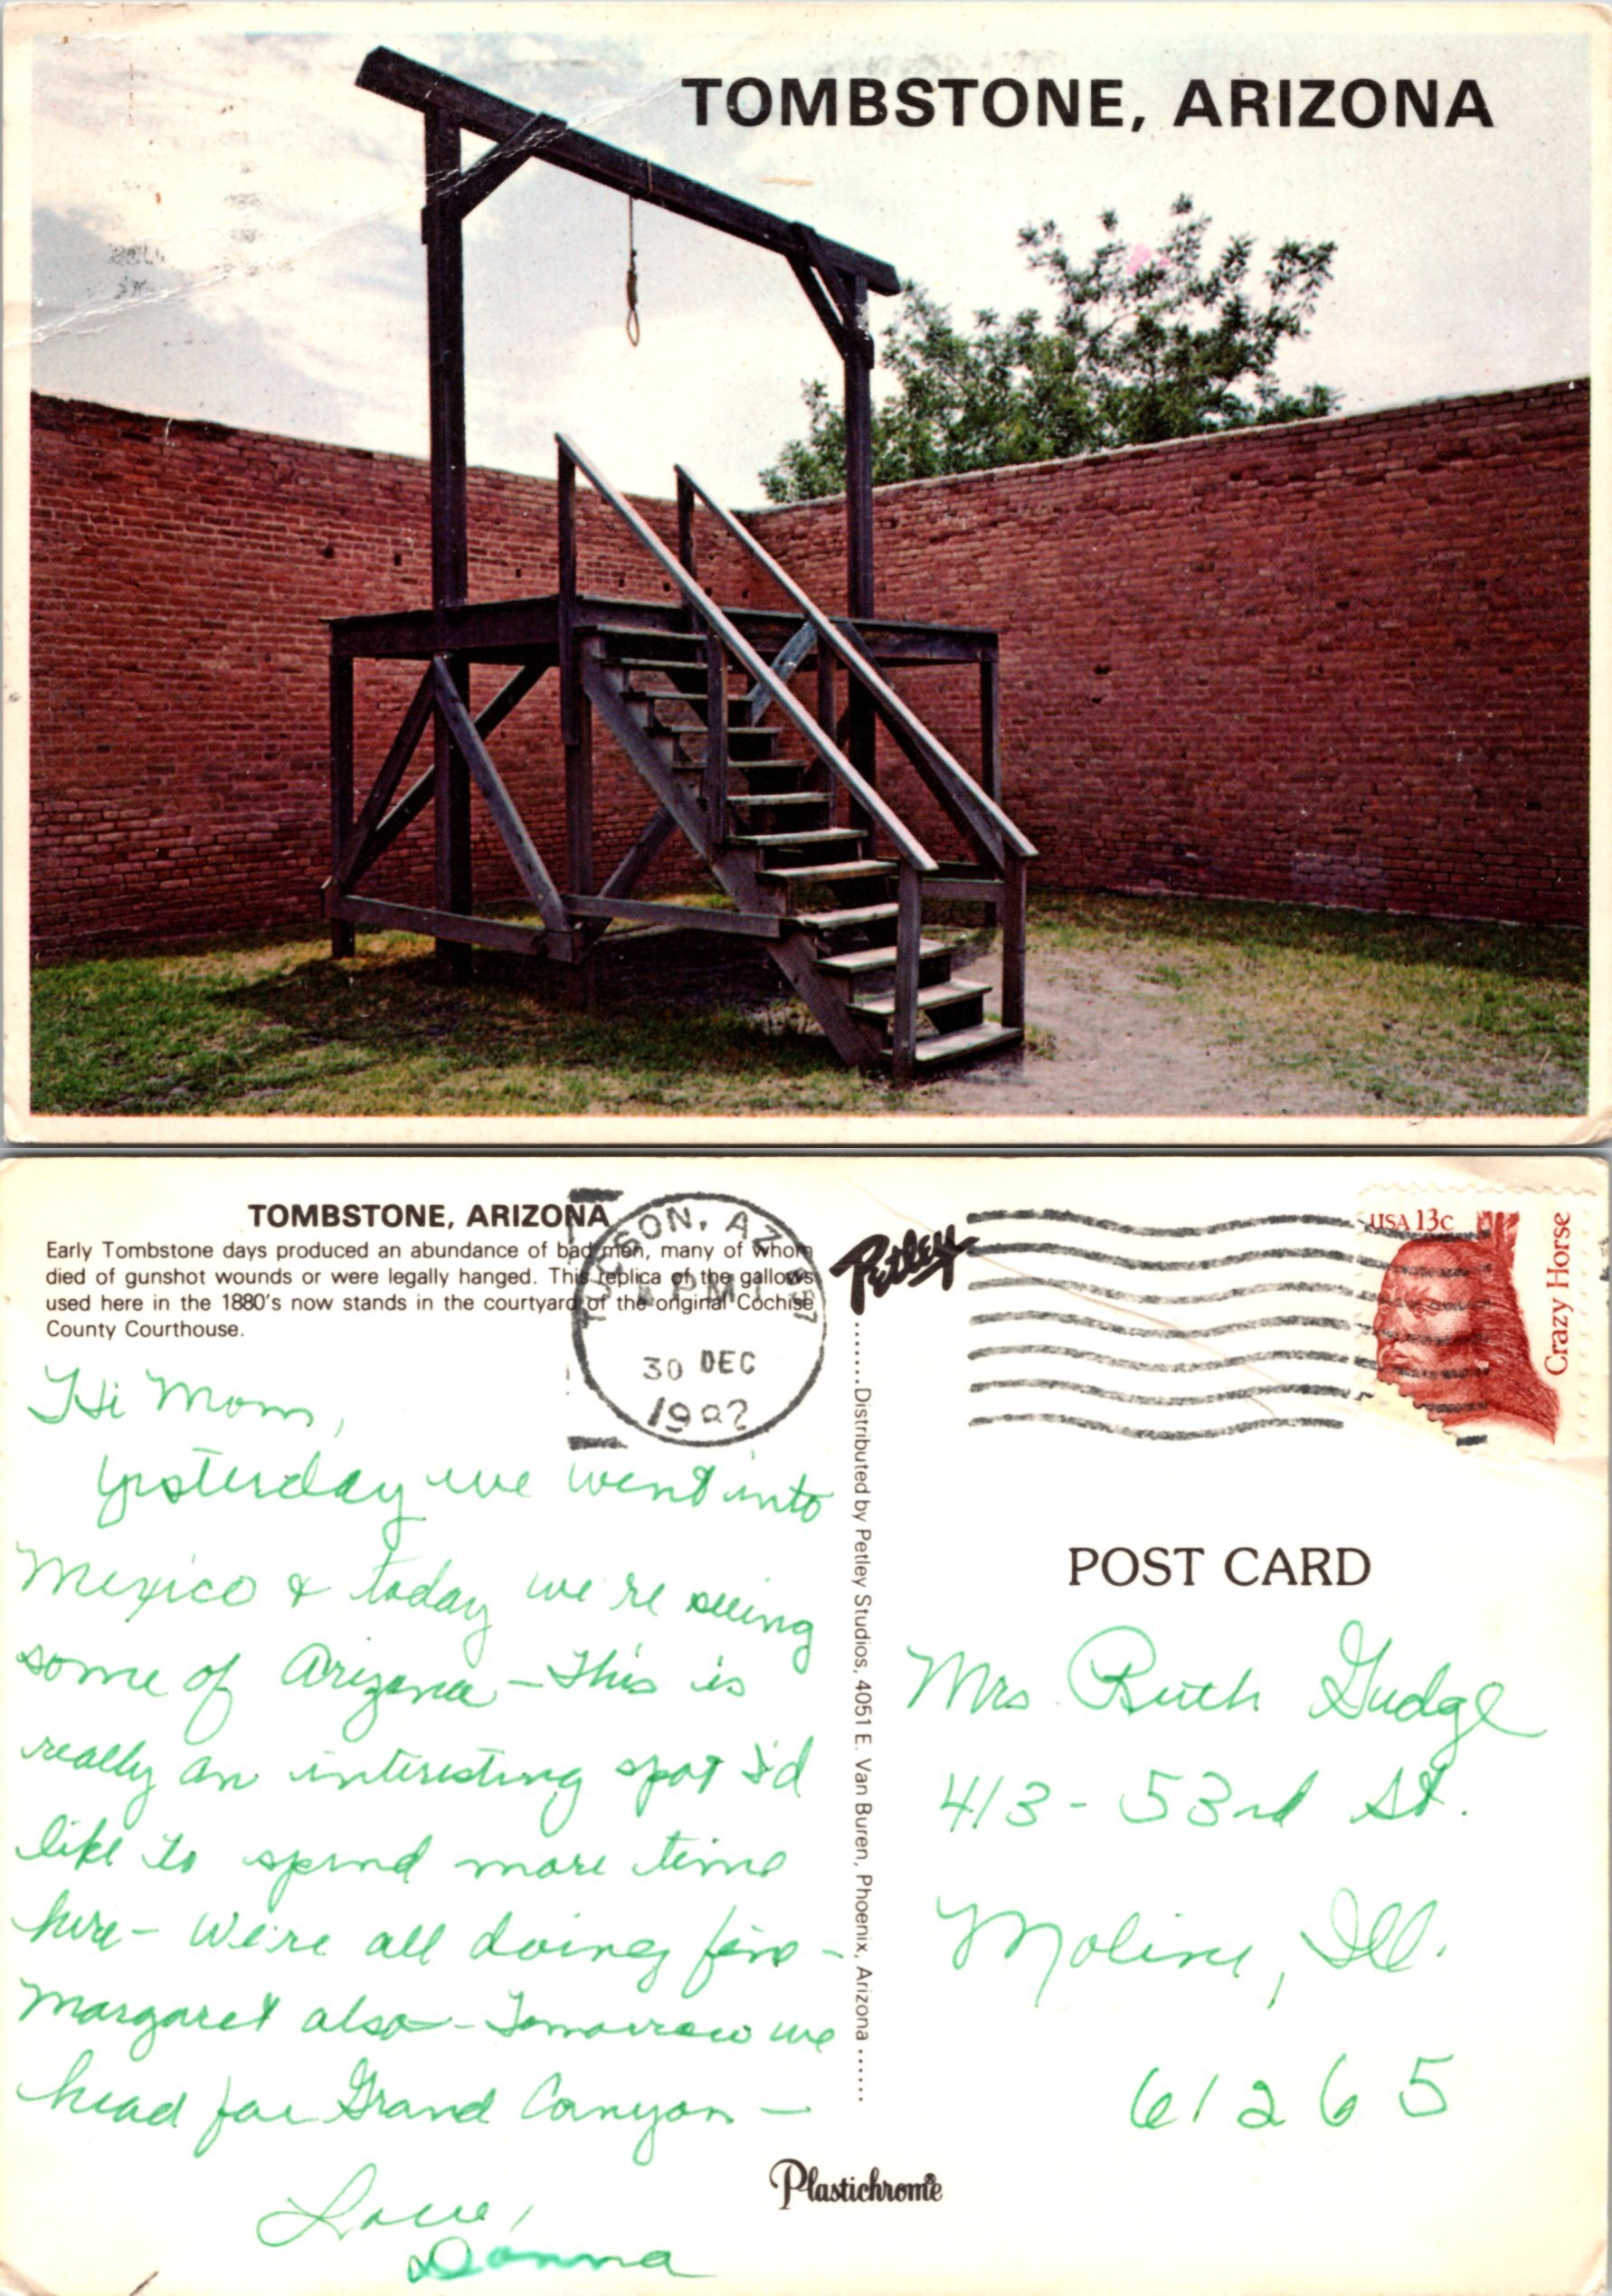 TOMBSTONE, ARIZONA
TOMBSTONE, ARIZONA
Early Tombstone days produced an abundance of bad men, many of whom
died of gunshot wounds or were legally hanged. This replica of the gallows
used here in the 1880's now stands in the courtyard of the original Cochise
County Courthouse.
TUCSON, AZ 857
PM
30 DEC
1982
Petley
USA 13c
Crazy Horse
Hi Mom,
Yesterday we went into
Mexico & today we're seeing
some of Arizona - This is
really an interesting spot I'd
like to spend more time
here - We're all doing fine -
Margaret also - Tomorrow we
head for Grand Canyon -
Love,
Donna
Distributed by Petley Studios, 4051 E. Van Buren, Phoenix, Arizona
POST CARD
Mrs Ruth Gudge
413 - 53rd St.
Moline, Ill.
61265
Plastichrome